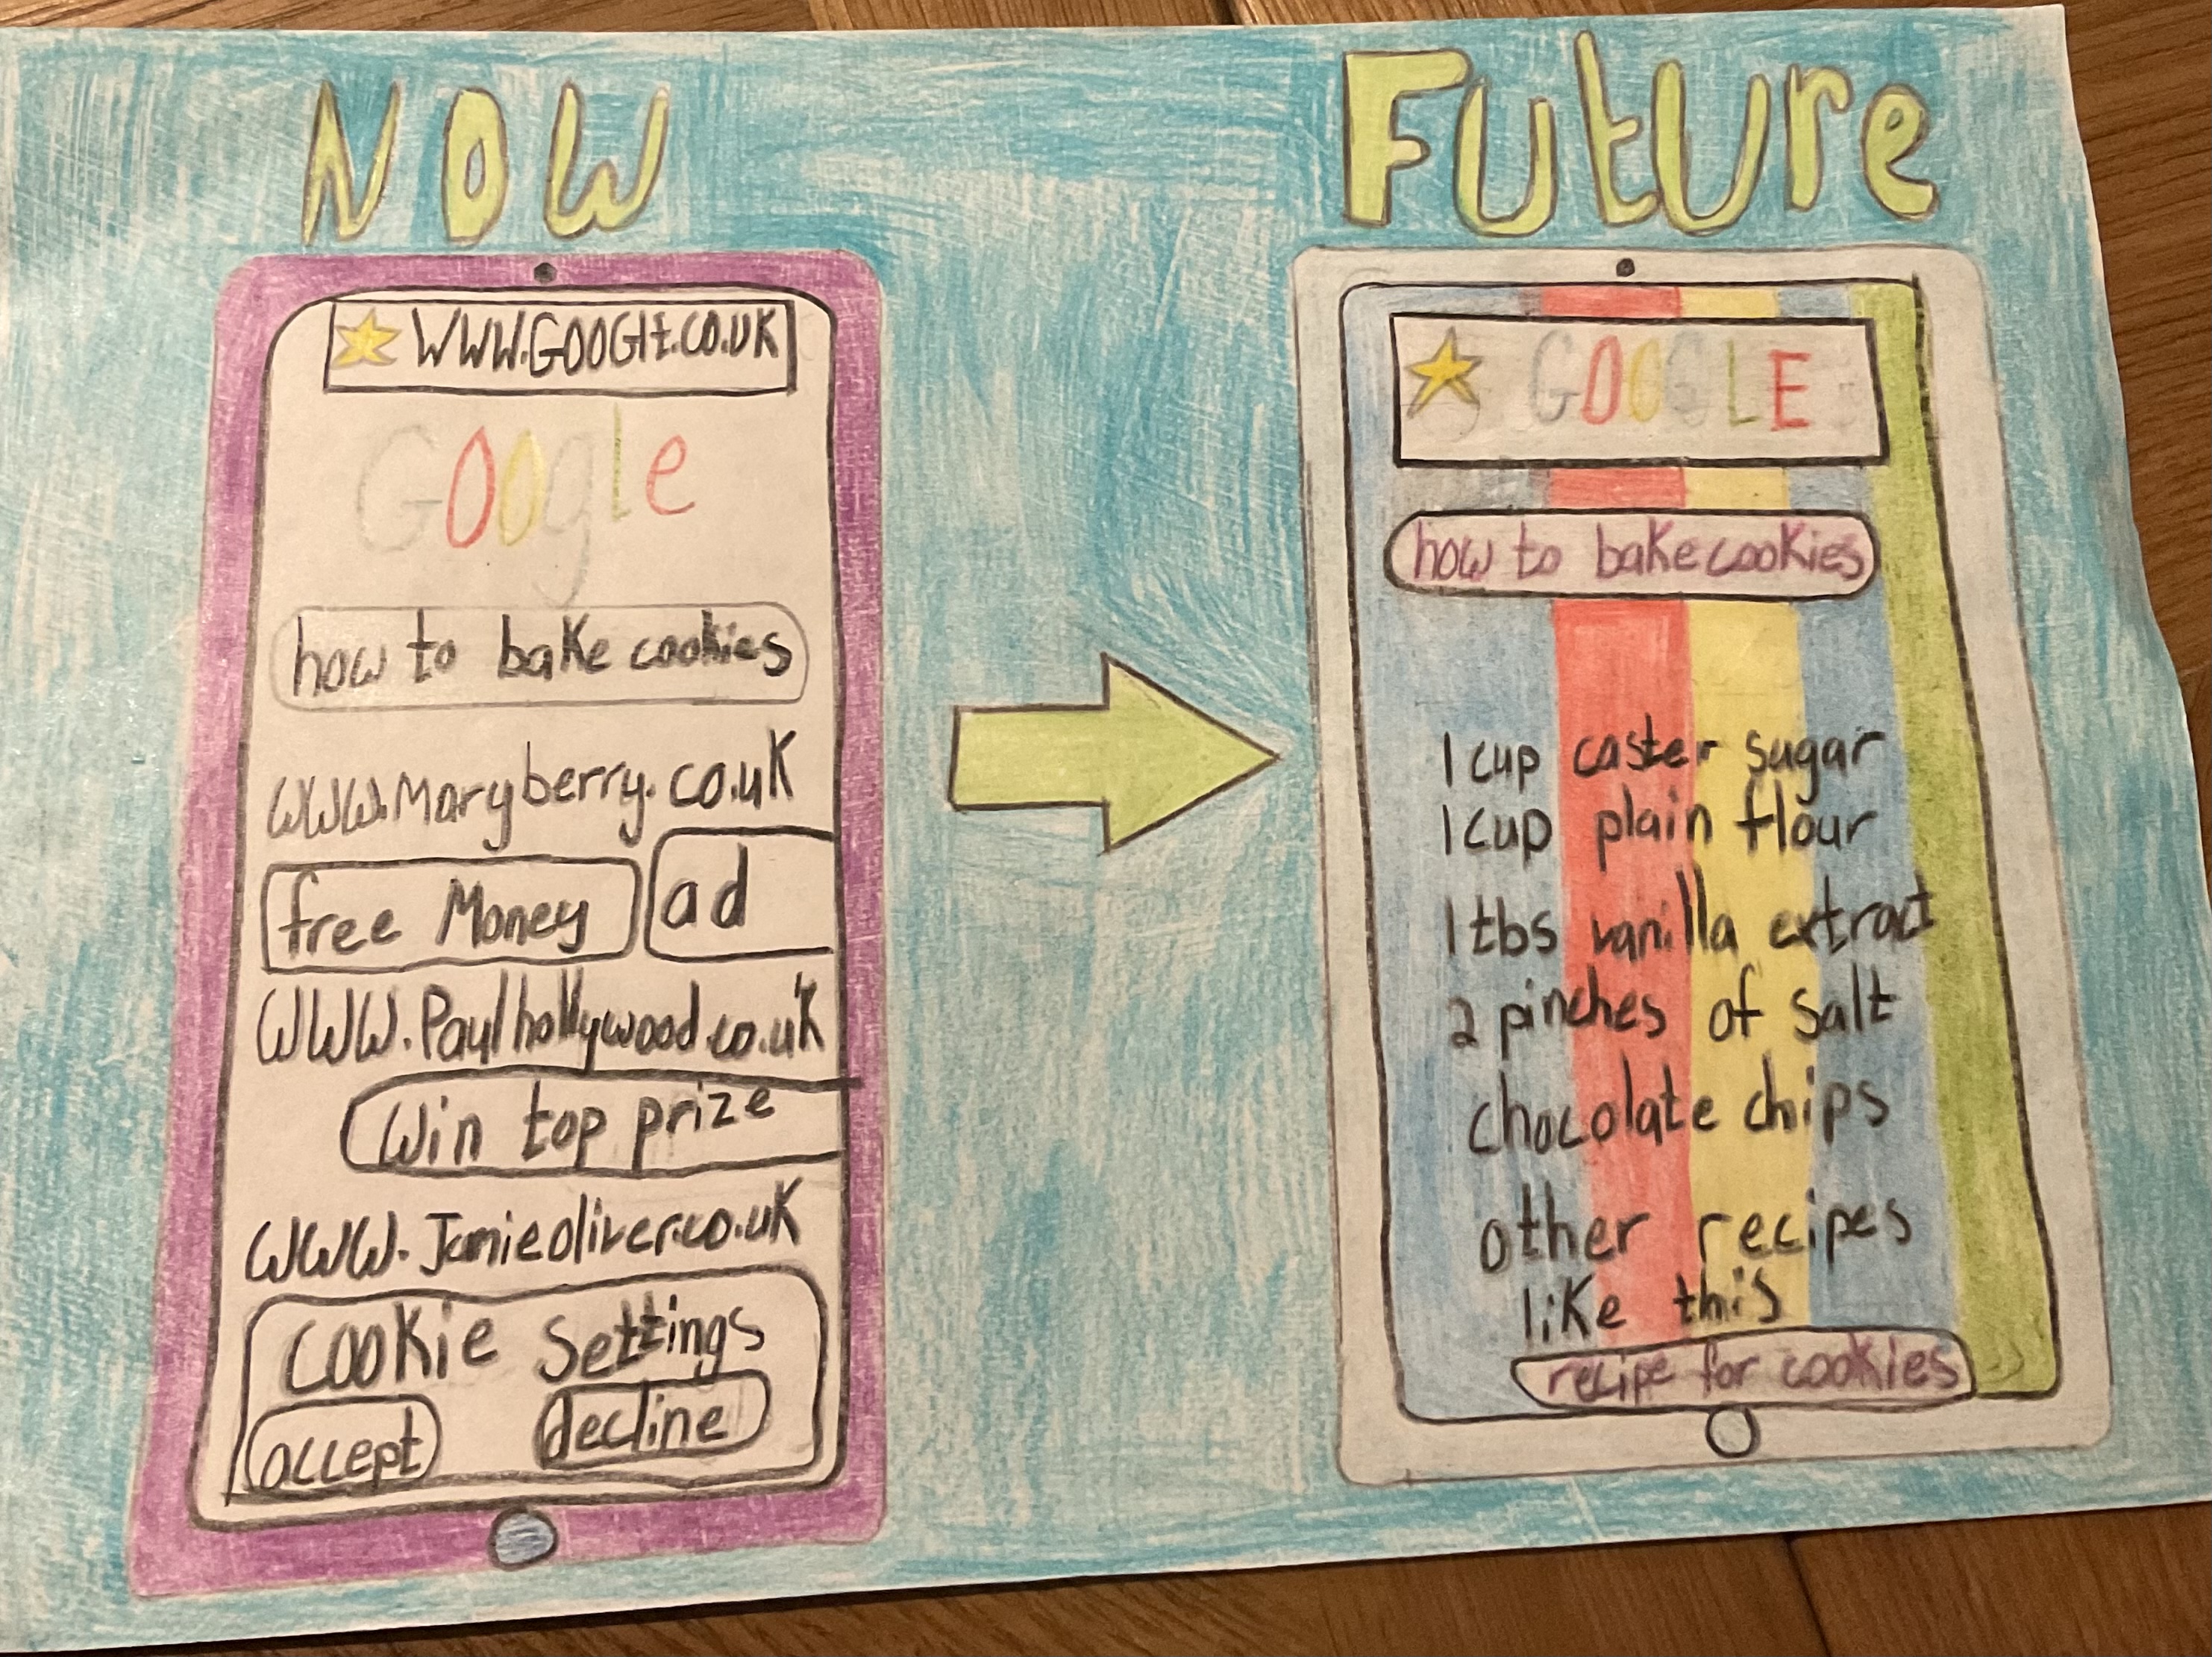 NOW
WWW.GOOGlE.CO.UK
Google
how to bake cookies
WWW.Maryberry.co.uk
free Money
ad
WWW.Paulhollywood.co.uk
Win top prize
WWW.Jamieoliver.co.uk
cookie settings
accept
decline
Future
GOOGLE
how to bake cookies
1 cup caster sugar
1 cup plain flour
1 tbs vanilla extract
2 pinches of salt
chocolate chips
other recipes
like this
recipe for cookies